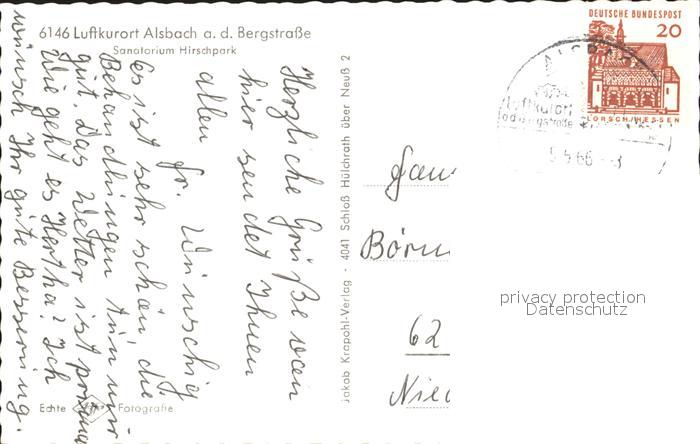 6146 Luftkurort Alsbach a. d. Bergstraße
Sanatorium Hirschpark
Herzliche Grüße von
hier sendet Ihnen
allen
Fr. Wünschig
Es ist sehr schön, die
Behandlungen tun mir
gut. Das Wetter ist prima
Wie geht es Hertha? Ich
wünsch Ihr gute Besserung.
Echte
Fotografie
Jakob Krapohl-Verlag · 4041 Schloß Hülchrath über Neuß 2
DEUTSCHE BUNDESPOST
20
LORSCH/HESSEN
ALSBACH
Luftkurort
5.5.66
Fam
Börn
62
Nied
privacy protection
Datenschutz